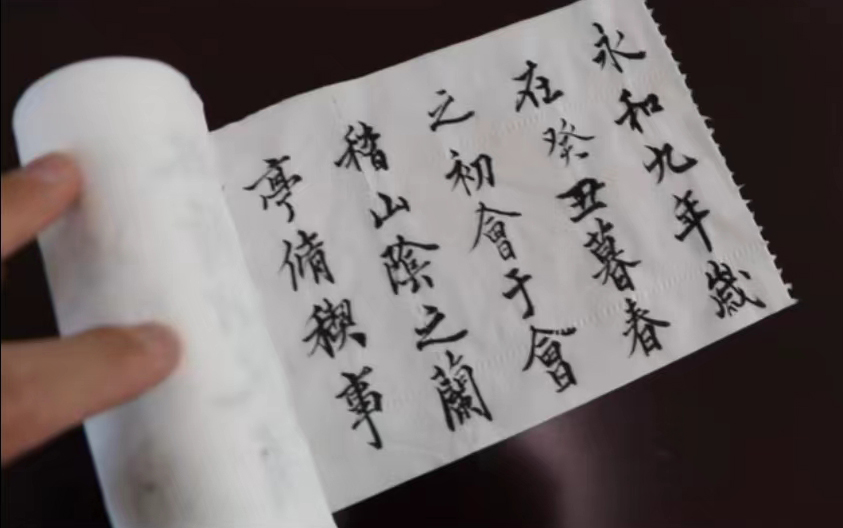 永和九年歲
在癸丑暮春
之初會于會
稽山陰之蘭
亭脩稧事